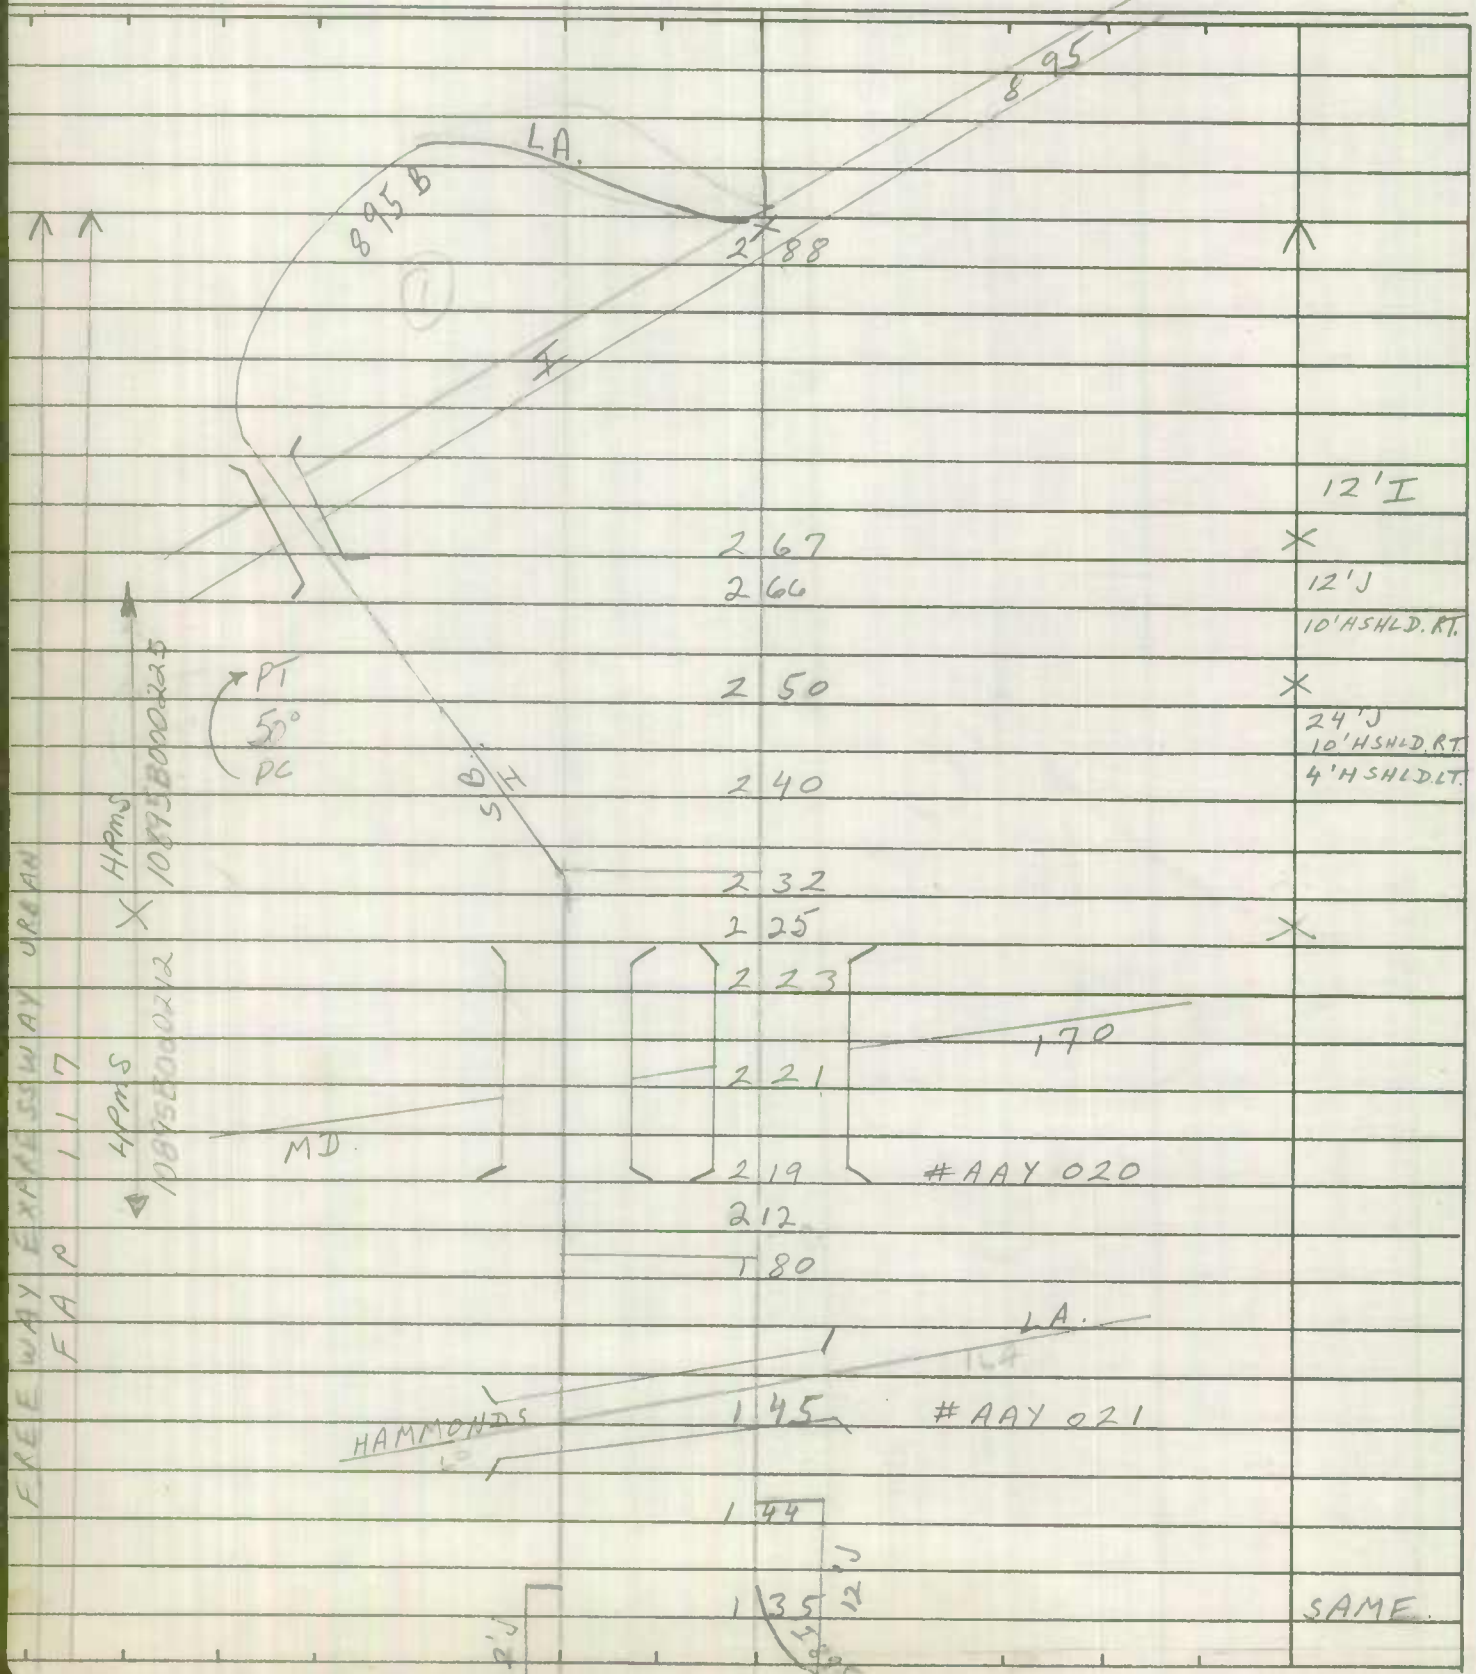 8 95
LA.
895 B
2 88
1
I
12' I
2 67
2 66
12' J
10' H SHLD. RT.
PT
50°
PC
2 50
24' J
10' H SHLD. RT.
4' H SHLD. LT.
S B.
I
2 40
2 32
2 25
2 23
170
2 21
MD.
2 19
# AAY 020
2 12
1 80
LA.
HAMMONDS
1 45
# AAY 021
1 44
12' J
1 35
SAME.
FREEWAY EXPRESSWAY URBAN
F A P 1 1 7
HPMS
HPMS
10895B000225
10895B000212